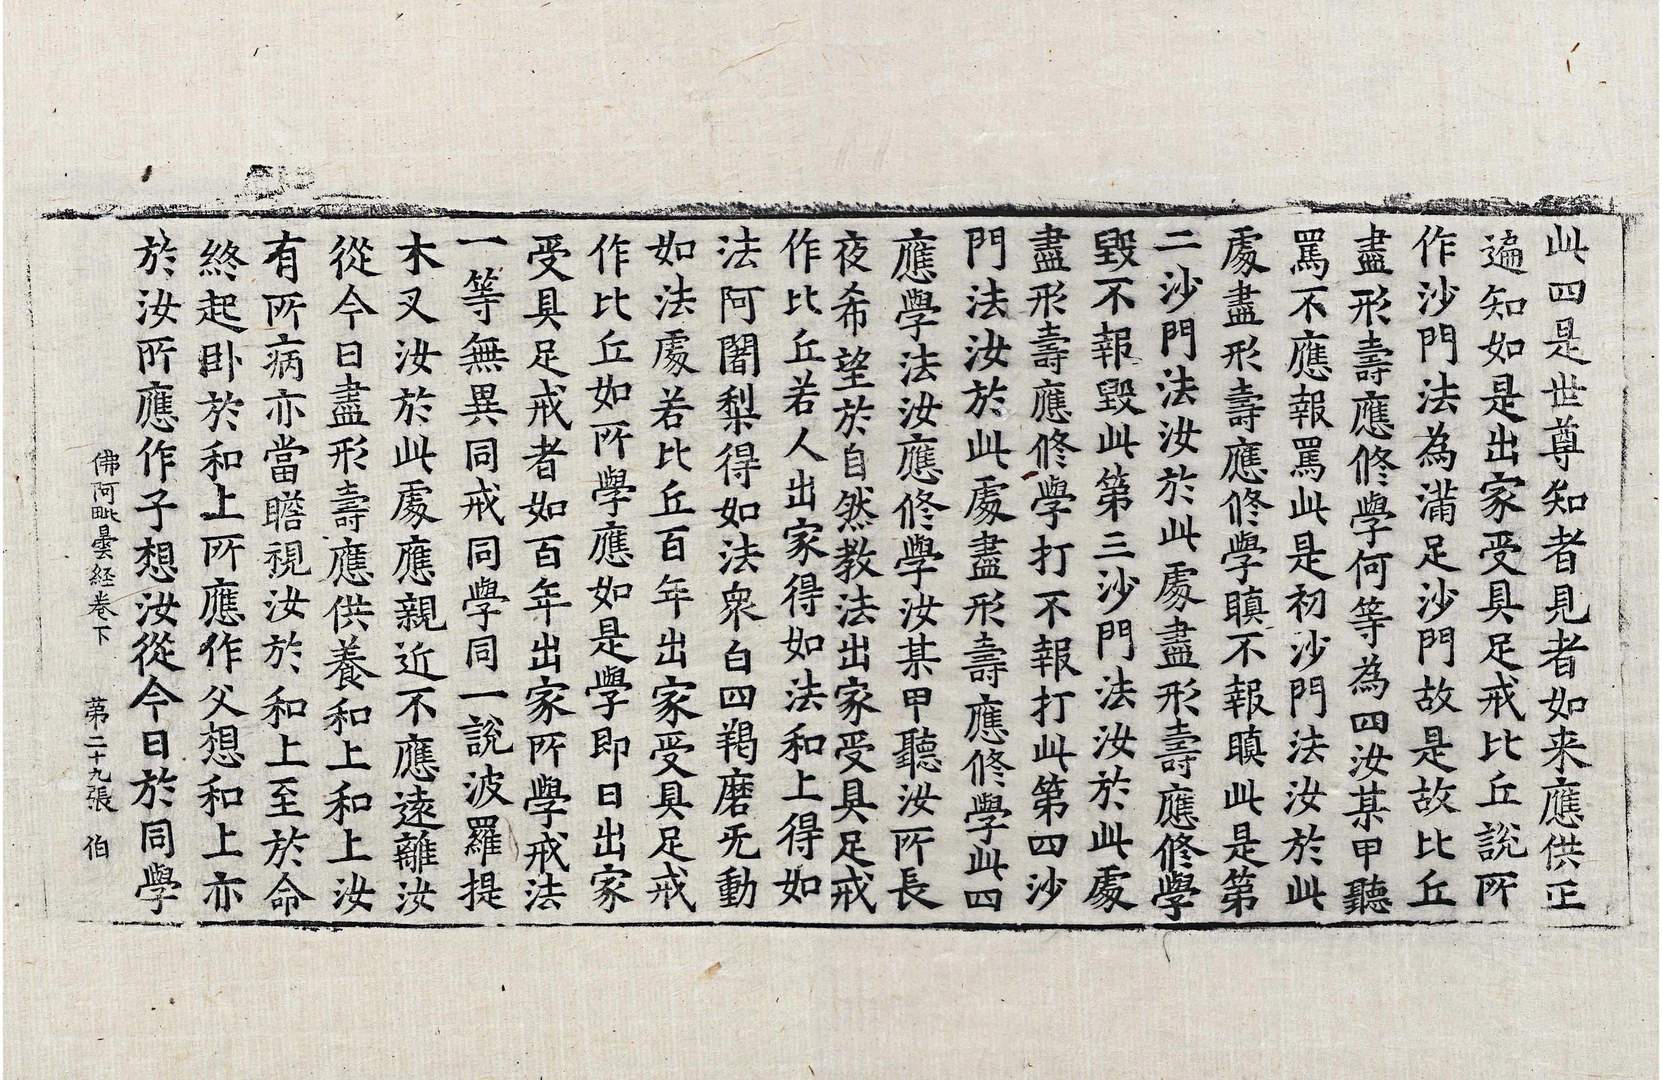 此四是世尊知者見者如来應供正
遍知如是出家受具足戒比丘說所
作沙門法為滿足沙門故是故比丘
盡形壽應修學何等為四汝某甲聽
罵不應報罵此是初沙門法汝於此
處盡形壽應修學瞋不報瞋此是第
二沙門法汝於此處盡形壽應修學
毀不報毀此第三沙門法汝於此處
盡形壽應修學打不報打此第四沙
門法汝於此處盡形壽應修學此四
應學法汝應修學汝某甲聽汝所長
夜希望於自然教法出家受具足戒
作比丘若人出家得如法和上得如
法阿闍梨得如法衆白四羯磨无動
如法處若比丘百年出家受具足戒
作比丘如所學應如是學即日出家
受具足戒者如百年出家所學戒法
一等無異同戒同學同一說波羅提
木叉汝於此處應親近不應遠離汝
從今日盡形壽應供養和上和上汝
有所病亦當瞻視汝於和上至於命
終起卧於和上所應作父想和上亦
於汝所應作子想汝從今日於同學
佛阿毗曇経卷下 第二十九張 伯